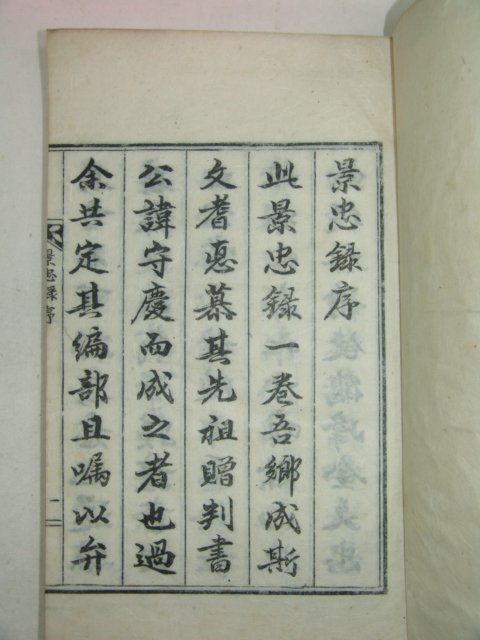 景忠録序
此景忠録一卷吾鄉成斯
文耆悳慕其先祖贈判書
公諱守慶而成之者也過
余共定其編部且嘱以弁
景忠録序
一